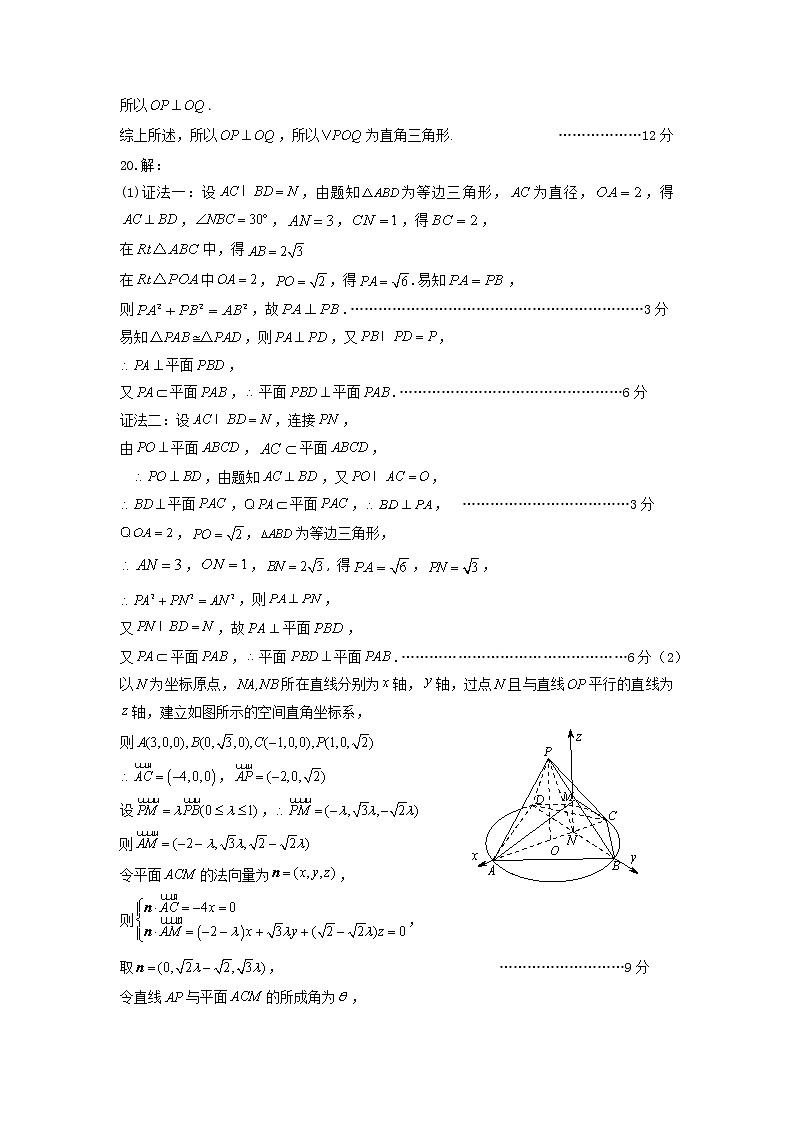 所以OP⊥OQ.
综上所述，所以OP⊥OQ，所以∨POQ为直角三角形. ………………12分
20.解：
(1)证法一：设AC∣ BD=N，由题知△ABD为等边三角形，AC为直径，OA=2，得
AC⊥BD，∠NBC=30°，AN=3，CN=1，得BC=2，
在Rt△ABC中，得AB=2√3
在Rt△POA中OA=2，PO=√2，得PA=√6.易知PA=PB，
则PA²+PB²=AB²，故PA⊥PB.………………………………………………………3分
易知△PAB≌△PAD，则PA⊥PD，又PB∣ PD=P，
∴PA⊥平面PBD，
又PA⊂平面PAB，∴平面PBD⊥平面PAB.…………………………………………6分
证法二：设AC∣ BD=N，连接PN，
由PO⊥平面ABCD，AC⊂平面ABCD，
∴PO⊥BD，由题知AC⊥BD，又PO∣ AC=O，
∴BD⊥平面PAC，Q PA⊂平面PAC，∴BD⊥PA， ………………………………3分
Q OA=2，PO=√2，△ABD为等边三角形，
∴AN=3，ON=1，BN=2√3，得PA=√6，PN=√3，
∴PA²+PN²=AN²，则PA⊥PN，
又PN∣ BD=N，故PA⊥平面PBD，
又PA⊂平面PAB，∴平面PBD⊥平面PAB.…………………………………………6分（2）
以N为坐标原点，NA,NB所在直线分别为x轴，y轴，过点N且与直线OP平行的直线为
z轴，建立如图所示的空间直角坐标系，
则A(3,0,0),B(0,√3,0),C(−1,0,0),P(1,0,√2)
∴AC=(−4,0,0)，AP=(−2,0,√2)
设PM=λPB(0≤λ≤1)，∴PM=(−λ,√3λ,−√2λ)
则AM=(−2−λ,√3λ,√2−√2λ)
令平面ACM的法向量为n=(x,y,z)，
则{n·AC=−4x=0
n·AM=(−2−λ)x+√3λy+(√2−√2λ)z=0，
取n=(0,√2λ−√2,√3λ)， ………………………9分
令直线AP与平面ACM的所成角为θ，
z
P
D
M
C
N
O
x
A
B
y